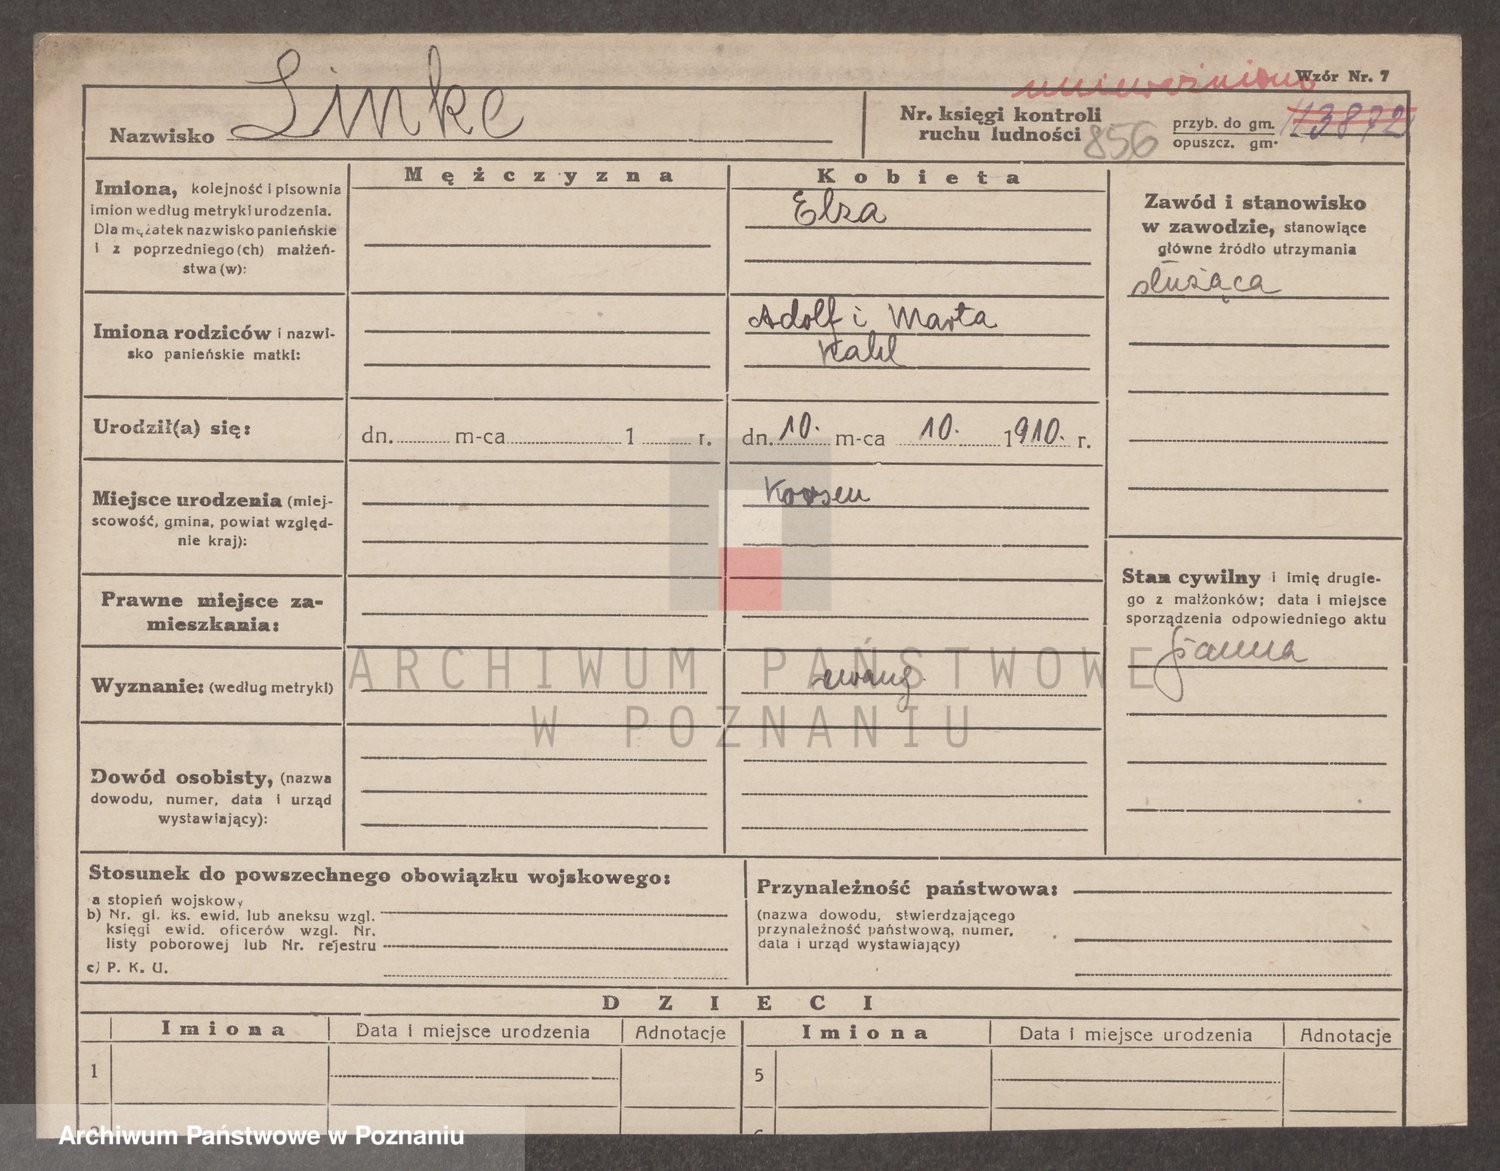 unieważniono
Wzór Nr. 7
Nazwisko Linke
Nr. księgi kontroli
ruchu ludności 856
przyb. do gm.
opuszcz. gm.
113872
Mężczyzna
Kobieta
Imiona, kolejność i pisownia
imion według metryki urodzenia.
Dla mężatek nazwisko panieńskie
i z poprzedniego(ch) małżeń-
stwa(w):
Elza
Zawód i stanowisko
w zawodzie, stanowiące
główne źródło utrzymania
służąca
Imiona rodziców i nazwi-
sko panieńskie matki:
Adolf i Marta
Kahl
Urodził(a) się:
dn. m-ca 1 r.
dn. 10. m-ca 10. 1910. r.
Miejsce urodzenia (miej-
scowość, gmina, powiat względ-
nie kraj):
Prawne miejsce za-
mieszkania:
Stan cywilny i imię drugie-
go z małżonków; data i miejsce
sporządzenia odpowiedniego aktu
panna
Wyznanie: (według metryki)
ewang.
ARCHIWUM PAŃSTWOWE
W POZNANIU
Dowód osobisty, (nazwa
dowodu, numer, data i urząd
wystawiający):
Stosunek do powszechnego obowiązku wojskowego:
a stopień wojskowy
b) Nr. gl. ks. ewid. lub aneksu wzgl.
księgi ewid. oficerów wzgl. Nr.
listy poborowej lub Nr. rejestru
c) P. K. U.
Przynależność państwowa:
(nazwa dowodu, stwierdzającego
przynależność państwową, numer,
data i urząd wystawiający)
DZIECI
Imiona Data i miejsce urodzenia Adnotacje Imiona Data i miejsce urodzenia Adnotacje
1 5
Archiwum Państwowe w Poznaniu